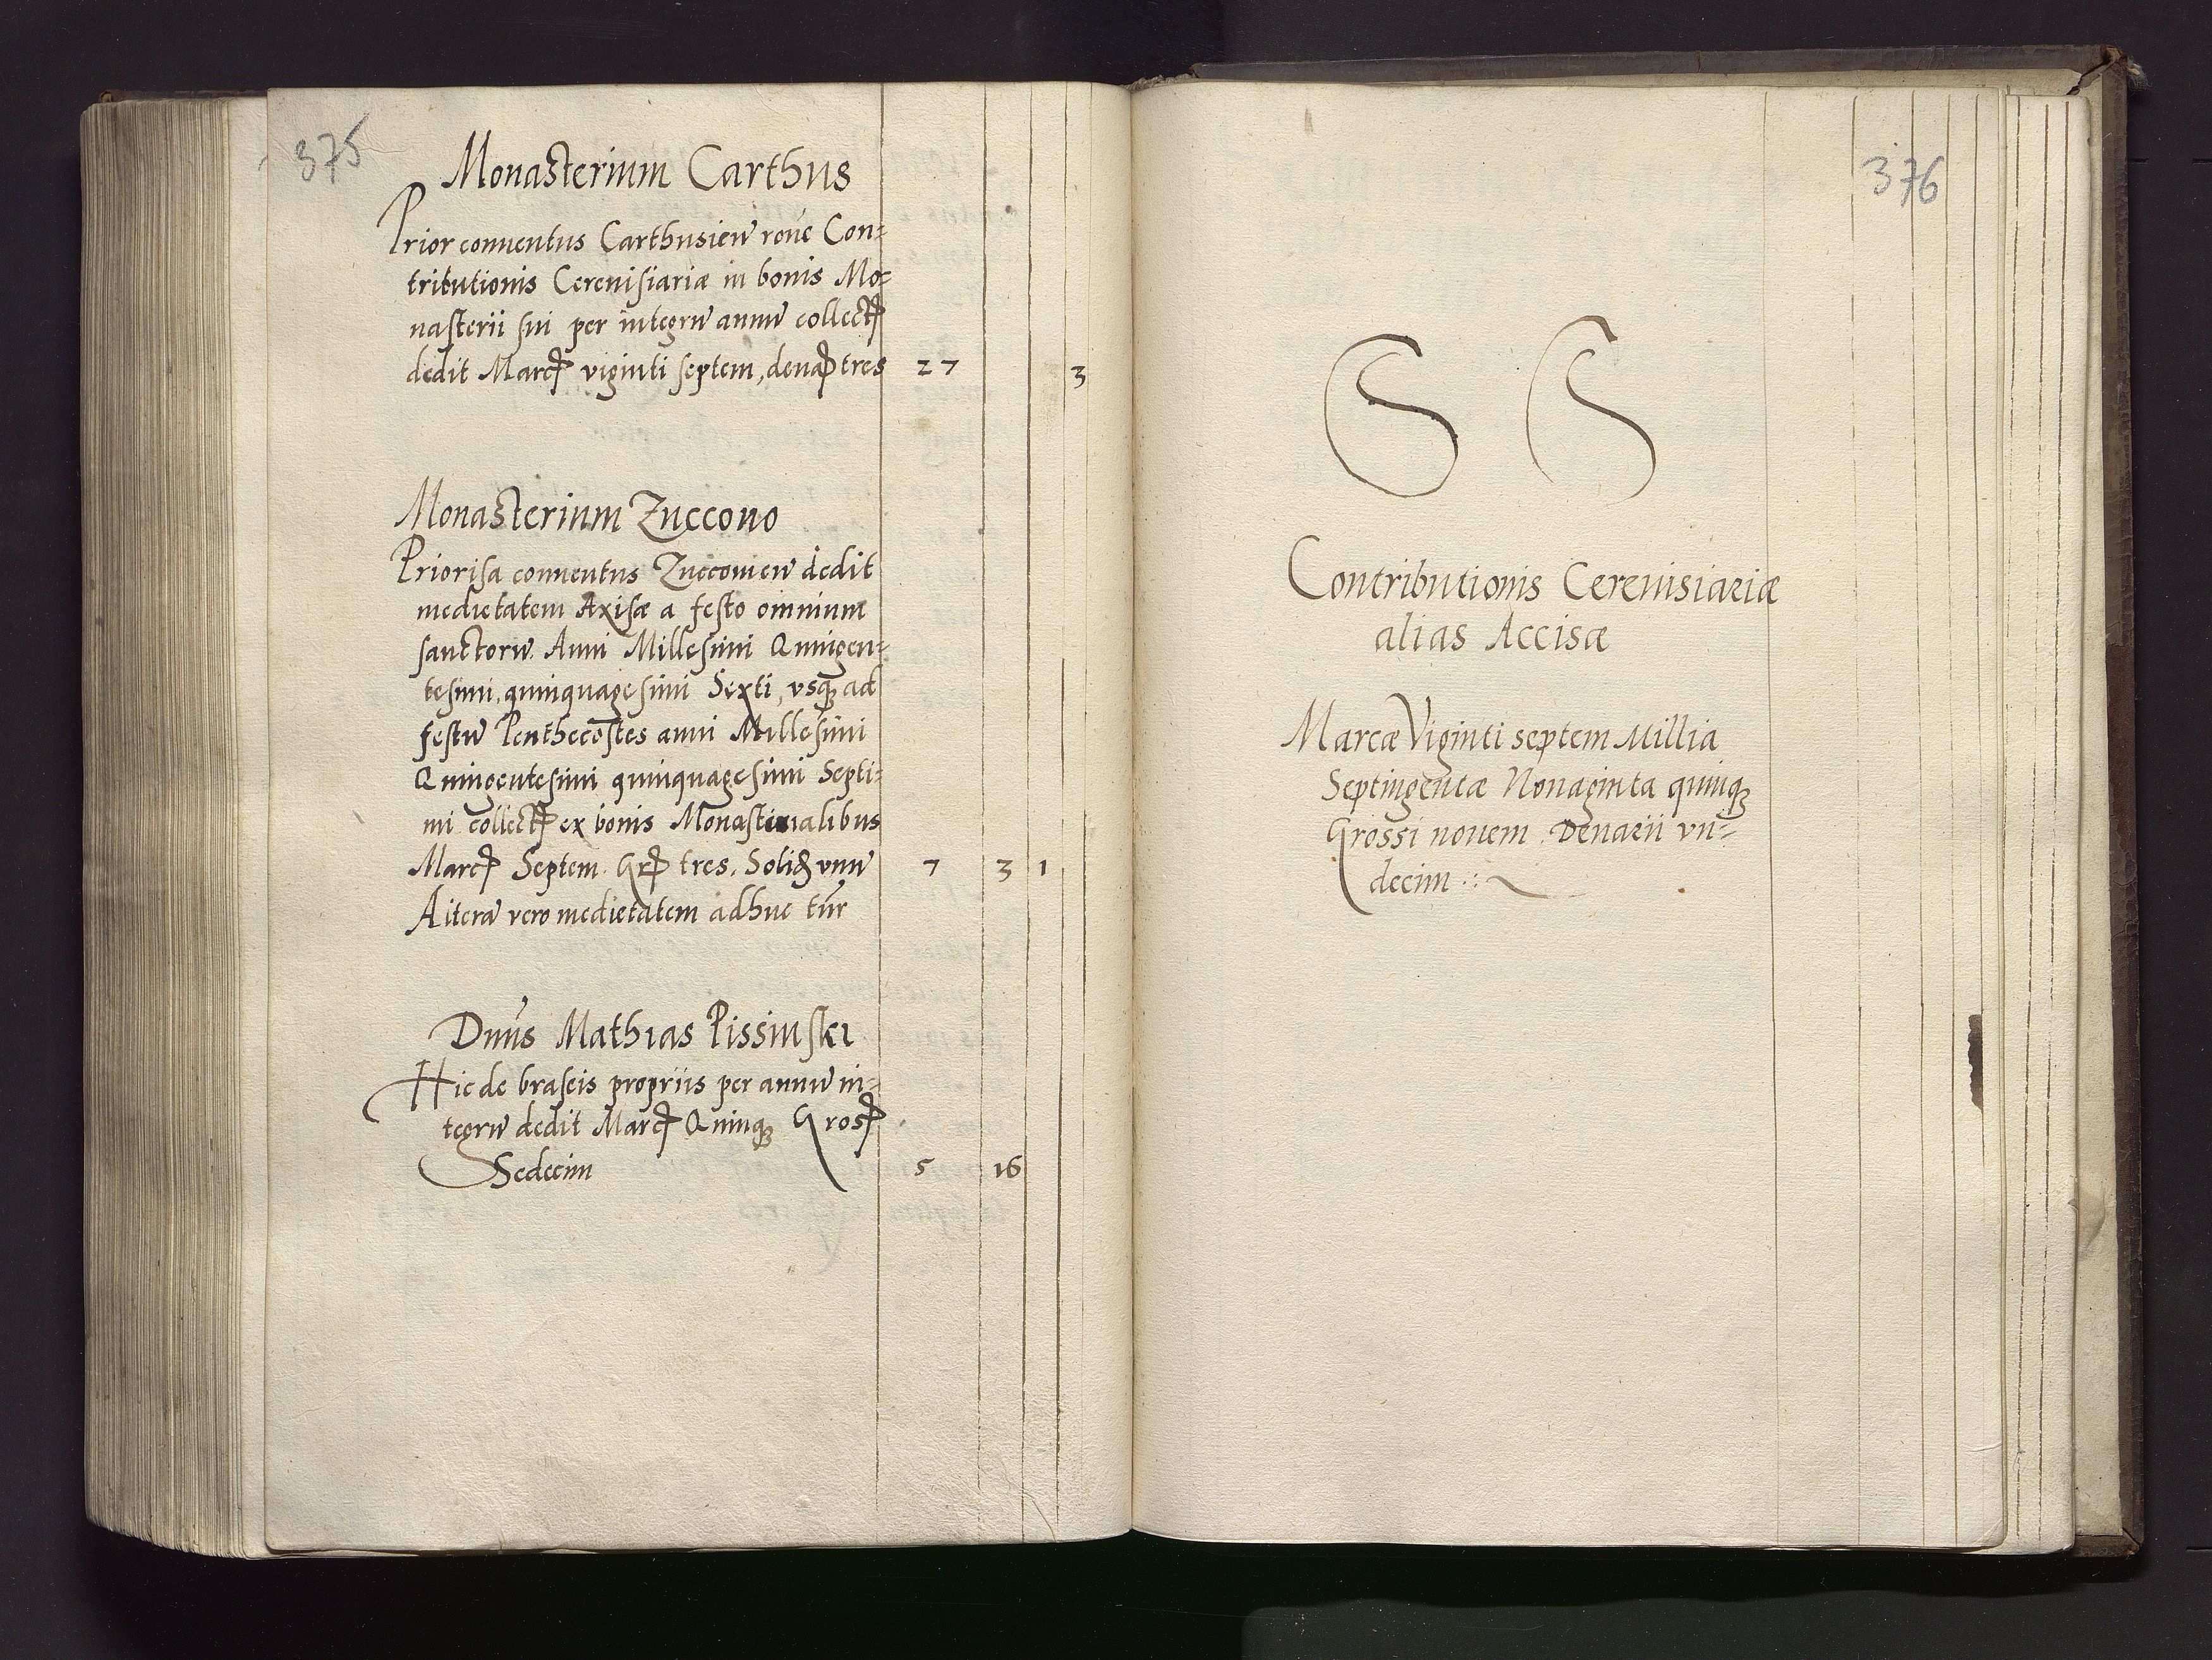 375
Monasterium Carthus
Prior conuentus Carthusien̄ roúe Con=
tributionis Cereuisiariæ in bonis Mo=
nasterii sui per integrū annū collectꝭ
dedit Marcꝭ viginti septem, denaꝭ tres 27 3
Monasterium Zuccouo
Priorisa conuentus Zuccouien̄ dedit
medietatem Axisæ a festo omnium
sanctorū Anni Millesimi Quingen=
tesimi, quinquagesimi Sexti, vsqꝫ ad
festū Penthecostes anni Millesimi
Quingentesimi quinquagesimi Septi=
mi collectꝭ ex bonis Monasterialibus
Marcꝭ Septem. Grꝭ tres. Solidꝭ vnū 7 3 1
Alterā vero medietatem adhuc tur̄
Dnús Mathias Pissinski
Hic de braseis propriis per annū in=
tegrū dedit Marcꝭ Quinqꝫ Grosꝭ
Sedecim 5 16
376
S S
Contributionis Cereuisiariæ
alias Accisæ
Marcæ Viginti septem Millia
Septingentæ Nonaginta quinqꝫ
Grossi nouem. Denarii vn=
decim